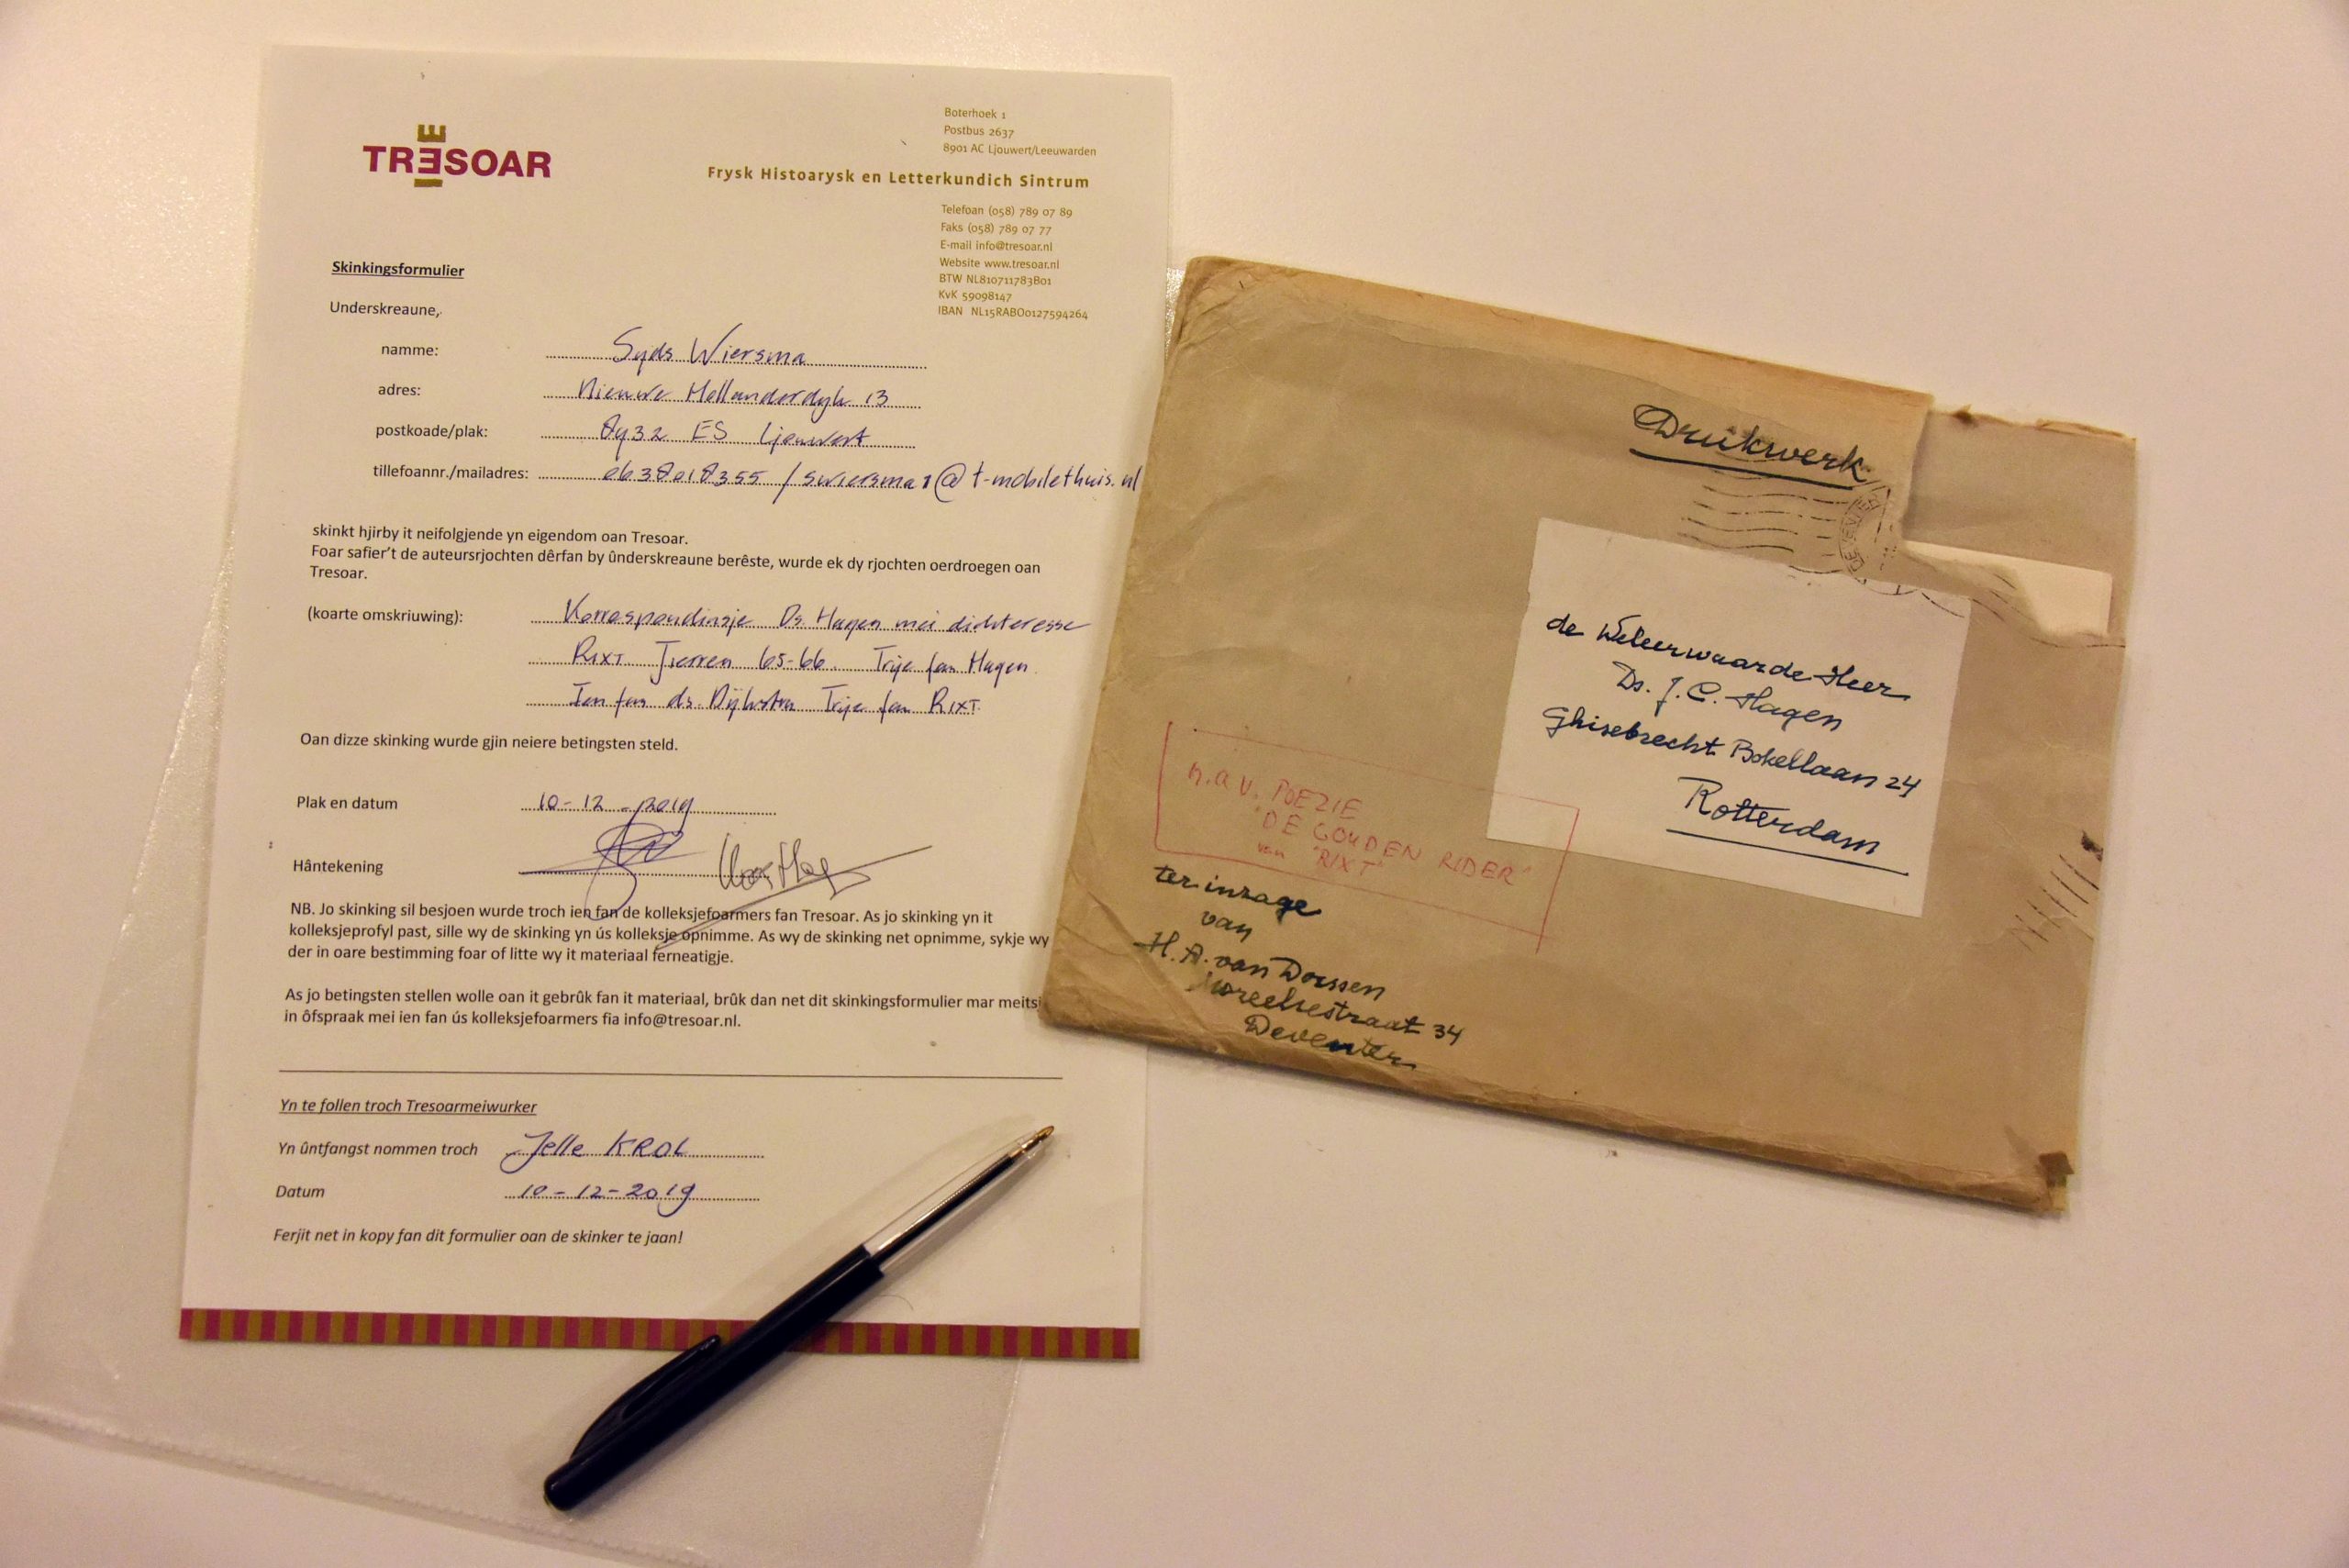 TRESOAR
Boterhoek 1
Postbus 2637
8901 AC Ljouwert/Leeuwarden
Frysk Histoarysk en Letterkundich Sintrum
Telefoan (058) 789 07 89
Faks (058) 789 07 77
E-mail info@tresoar.nl
Website www.tresoar.nl
BTW NL810711783B01
KvK 59098147
IBAN NL15RABO0127594264
Skinkingsformulier
Underskreaune,
namme: Syds Wiersma
adres: Nieuwe Hollanderdyk 13
postkoade/plak: 8932 ES Ljouwert
tillefoannr./mailadres: 0638018355 / swiersma1@t-mobilethuis.nl
skinkt hjirby it neifolgjende yn eigendom oan Tresoar.
Foar safier't de auteursrjochten dêrfan by ûnderskreaune berêste, wurde ek dy rjochten oerdroegen oan
Tresoar.
(koarte omskriuwing): Korrespondinsje Ds. Hagen mei dichteresse
Rixt Jierren 65-66. Trije fan Hagen.
Ien fan ds. Dijkstra Trije fan Rixt.
Oan dizze skinking wurde gjin neiere betingsten steld.
Plak en datum 10-12-2019
Hântekening
NB. Jo skinking sil besjoen wurde troch ien fan de kolleksjefoarmers fan Tresoar. As jo skinking yn it
kolleksjeprofyl past, sille wy de skinking yn ús kolleksje opnimme. As wy de skinking net opnimme, sykje wy
der in oare bestimming foar of litte wy it materiaal ferneatigje.
As jo betingsten stellen wolle oan it gebrûk fan it materiaal, brûk dan net dit skinkingsformulier mar meitsj
in ôfspraak mei ien fan ús kolleksjefoarmers fia info@tresoar.nl.
Yn te follen troch Tresoarmeiwurker
Yn ûntfangst nommen troch Jelle KROL
Datum 10-12-2019
Ferjit net in kopy fan dit formulier oan de skinker te jaan!
Drukwerk
DEVENTER
de Weleerwaarde Heer
Ds. J. C. Hagen
Ghisebrecht Bokellaan 24
Rotterdam
n.a.v. POEZIE
"DE GOUDEN RIDER"
van "RIXT"
ter inzage
van
H. A. van Dorssen
Moreelsestraat 34
Deventer